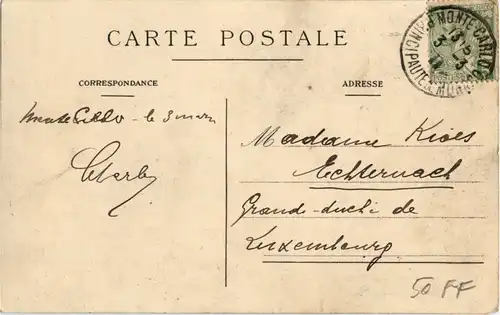 CARTE POSTALE
CORRESPONDANCE
Monte Carlo - le 3 mars
ADRESSE
Madame
Echternach
Grande-duché de
Luxembourg
MONTE CARLO
PRINCIPAUTÉ DE MONACO
50 FF